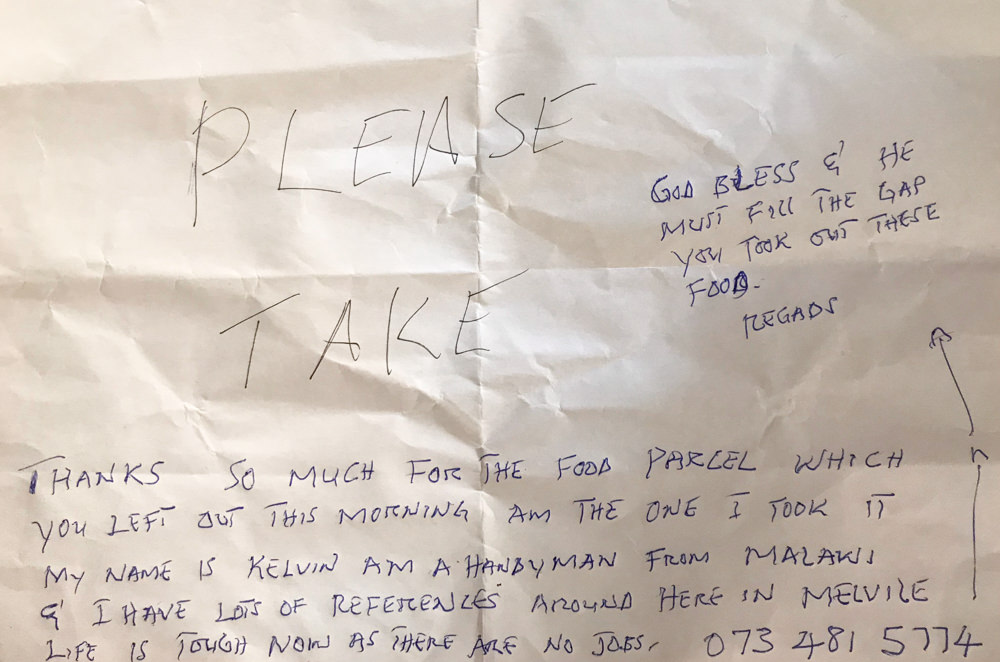 PLEASE
TAKE
THANKS SO MUCH FOR THE FOOD PARCEL WHICH
YOU LEFT OUT THIS MORNING AM THE ONE I TOOK IT
MY NAME IS KELVIN AM A HANDYMAN FROM MALAWI
& I HAVE LOTS OF REFERENCES AROUND HERE IN MELVILE
LIFE IS TOUGH NOW AS THERE ARE NO JOBS. 073 481 5774
GOD BLESS & HE
MUST FILL THE GAP
YOU TOOK OUT THESE
FOOD.
REGADS